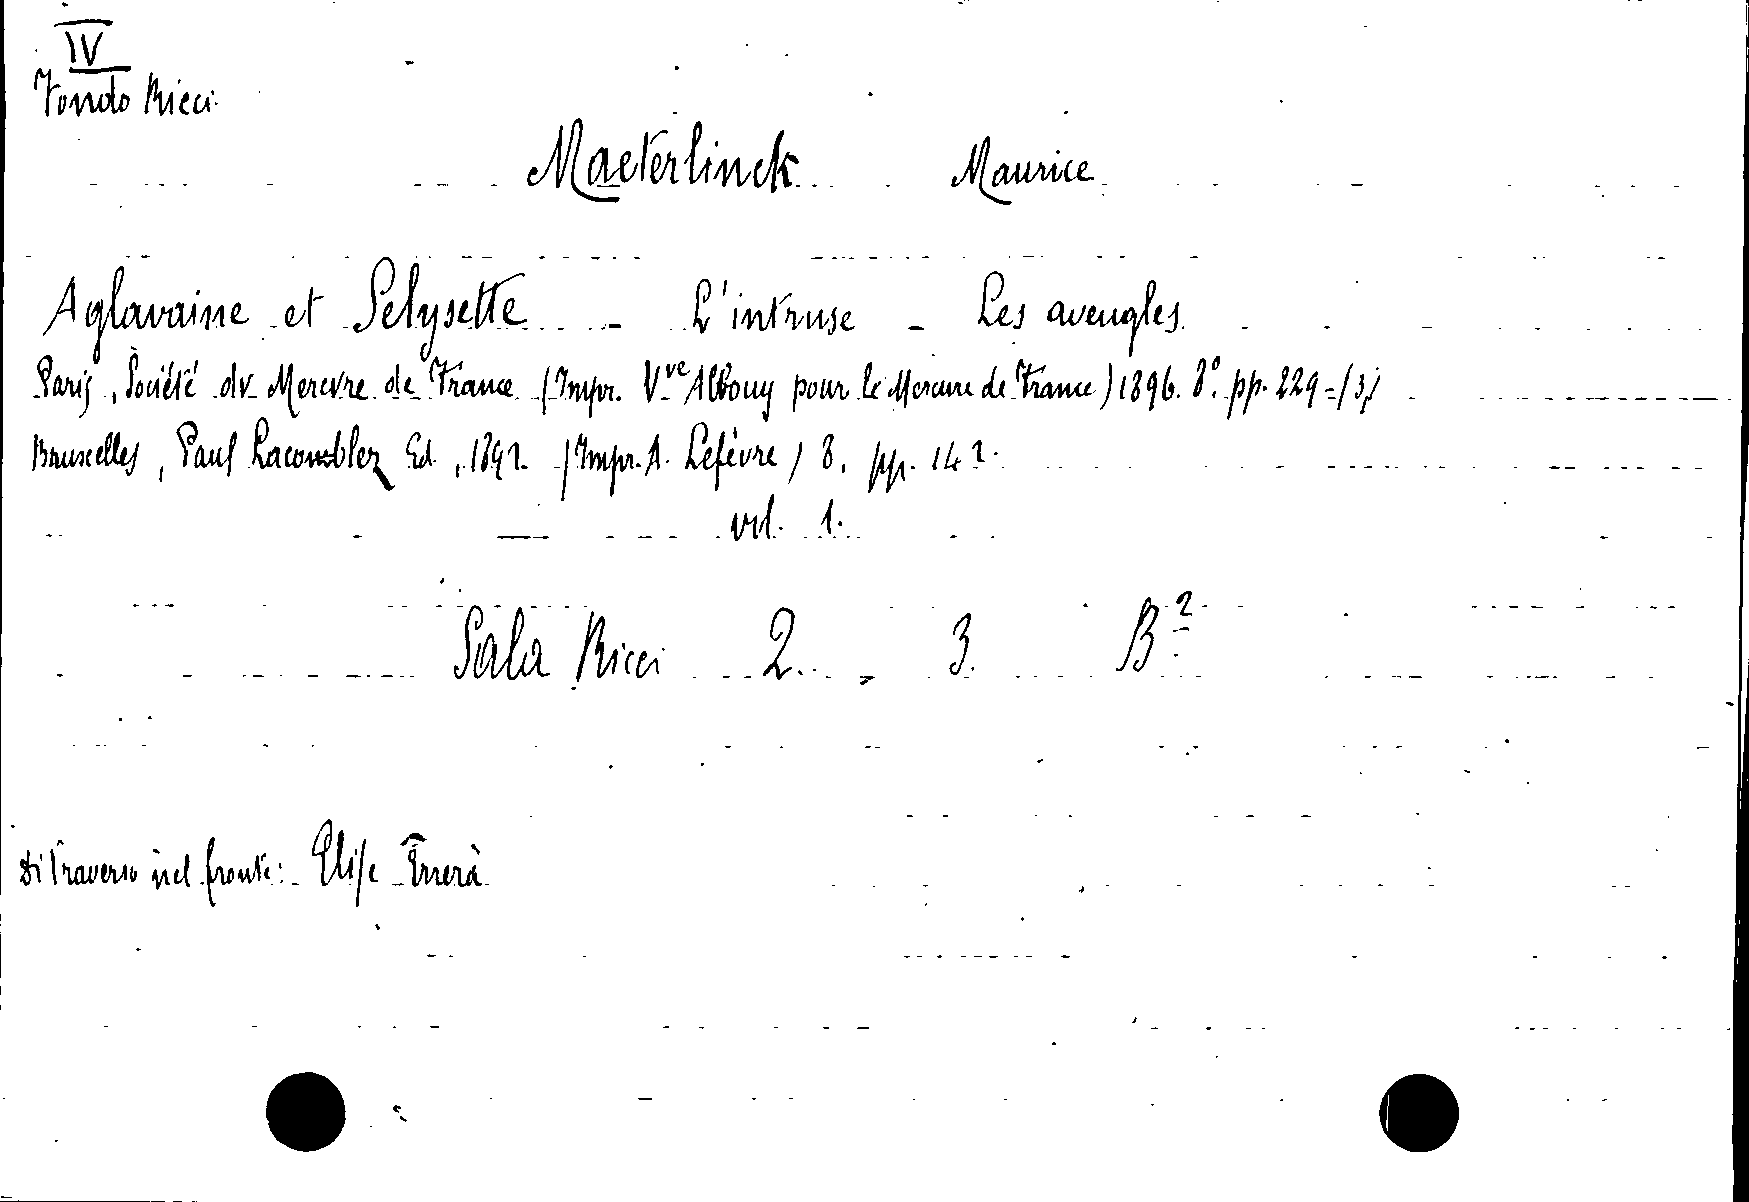 IV
Fondo Ricci
Maeterlinck Maurice
Aglavaine et Selysette - L'intruse - Les aveugles
Paris, Société du Mercvre de France (Impr. Vve Albouy pour le Mercure de France) 1896. 8° pp. 229-(3)
Bruxelles, Paul Lacomblez Ed, 1892. (Impr. A. Lefèvre) 8. pp. 142.
vol. 1.
Sala Ricci 2. - 3. B²
di traverso nel fronte: Elise Errerà